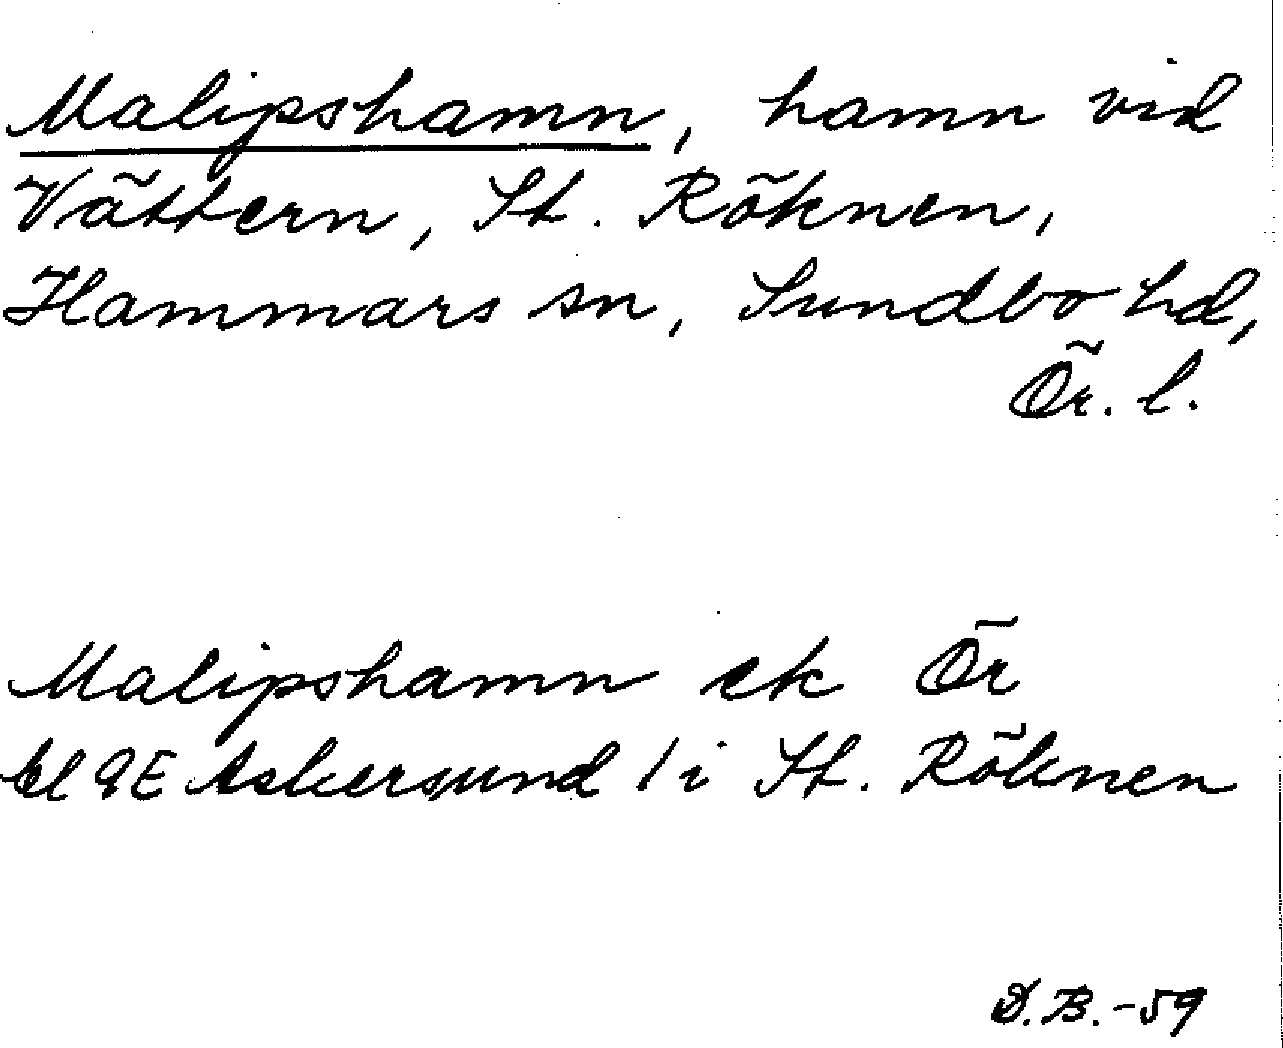 Malipshamn, hamn vid
Vättern, St. Röknen,
Hammars sn, Sundbo hd,
Ör. l.
Malipshamn ek Ör
bl 9E Askersund / i St. Röknen
D.B.-59